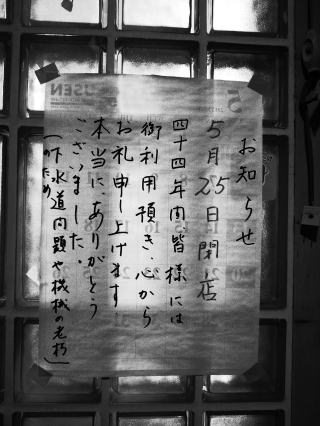 お知らせ
5月25日閉店
四十四年間皆様には
御利用預き、心から
お礼申し上げます。
本当に、ありがとう
ございました。
(下水道問題や機械の老朽)
のため
USEN
5